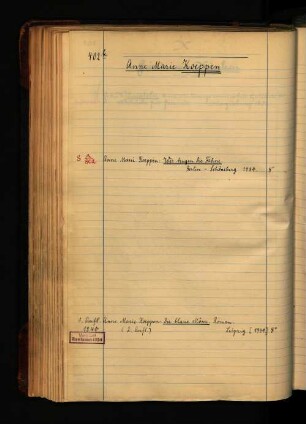 402
Anne Marie Koeppen
S Anne Marie Koeppen: Wir tragen die Fahne
Berlin - Schöneberg 1934 8°
1. Anne Marie Koeppen: Die blaue Möwe. Roman
1940 (2. Aufl.) Leipzig (1940) 8°